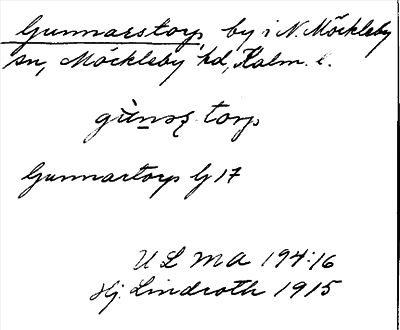 Gunnarstorp, by i N. Möckleby
sn, Möckleby hd, Kalm. l.
gùnəʂ torp
Gunnartorp G 17
ULMA 194:16
Hj. Lindroth 1915